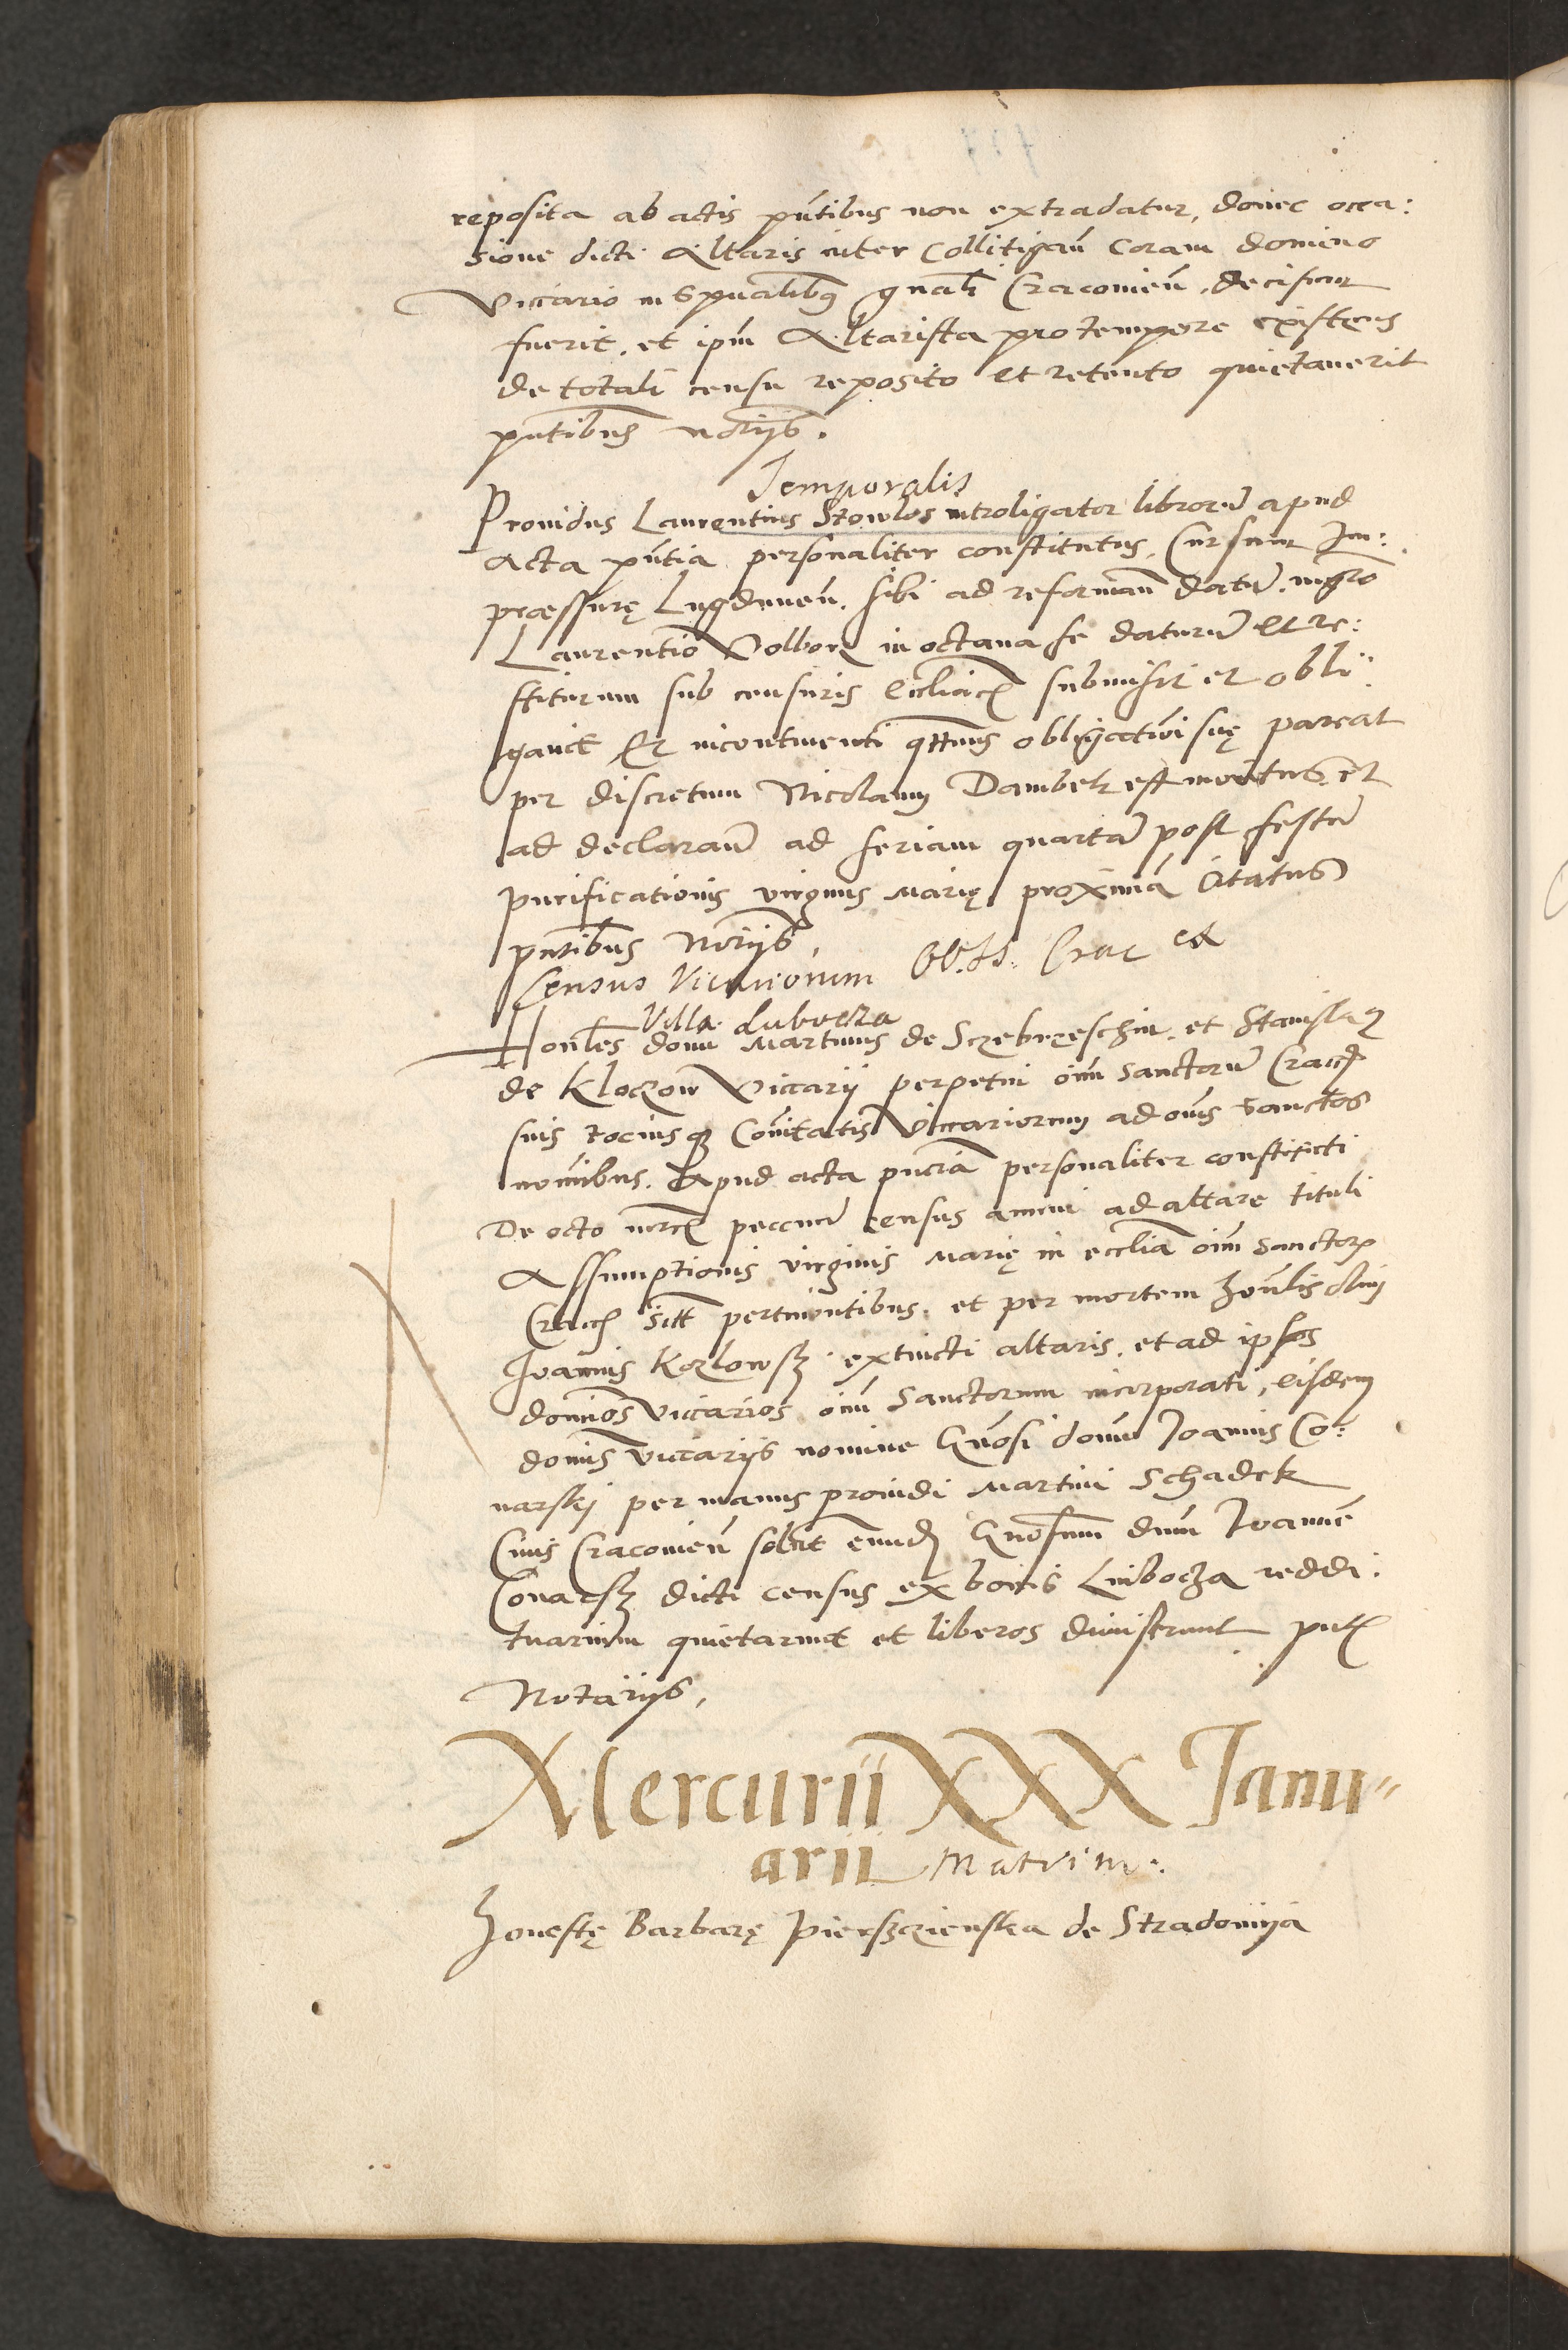 reposita ab actis pñtibus non extradatur, donec occa:
sione dicti Altaris inter Collitigañ Coram domino
Vicario in Spũalibus gnãli Cracovieñ. decisum
fuerit. et ipm̃ Altarista pro tempore existens
de totali censu reposito et retento quietaverit
pñtibus notarijs.
Temporalis
Providus Laurentius Stowlos introligator librorũ apud
Acta pñtia personaliter constitutus, Cursum Im:
pressurę Lugduneñ. sibi ad reformanđ datũ. mgrõ
Laurentio Volborz in octava se daturũ et re:
stiturum sub censuris eccliacis submisit et obli:
gavit Et incontinenti qtẽnus obligatiõi suę pareat
per discretum Nicolaum Dambek est monitus et
ad declaranđ ad feriam quartã post festũ
purificationis virginis Marię proximã Citatus
pñtibus Notarijs.
Census Vicariorum OO. SS. Crac et
Villa Lubocza
Honles domĩ Martinus de Sczebrzeschin. et Stanislaus
de Kloczow Vicarij perpetui oĩm Sanctorũ Cracoviẽ
suis tociusque Coĩtatis Vicariorum ad oẽs Sanctos
nomĩbus. Apud acta pñtia personaliter constituti
De octo mrcis peccuniẽ census annui ad altare tituli
Assumptionis virginis Marię in ecclia oĩm Sanctorum
Cracovieñ sitt pertinentibus. et per mortem honlis olim
Ioannis Kozlowsky extincti altaris. et ad ipsos
dominos Vicarios oĩm Sanctorum incorporati, eisdem
dominis Vicarijs nomine Gñosi domĩ Ioannis Co:
narskj per manus providi Martini Schadek
Civis Cracovieñ solut eundem Gñosum dnm Ioannẽ
Conarsky dicti census ex bonis Lubocza reddi:
tuarium quietarunt et liberos dimiserunt pñtibus
Notarijs,
Mercurii XXX Ianu"
arii Matrim:
Honestę Barbarę Pierszczienska de Stradomija